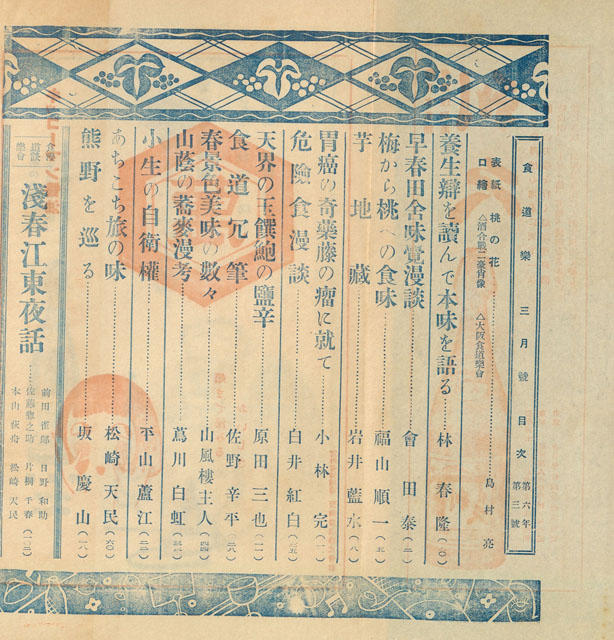 食道樂 三月號目次 第六年 第三號
表紙 桃の花 島村亮
口繪 △酒合戰二豪肖像 △大阪食道樂會
養生辯を讀んで本味を語る 林春隆
早春田舍味覺漫談 會田泰
梅から桃への食味 福山順一
芋地藏 岩井藍水
胃癌の奇藥藤の瘤に就て 小林完
危險食漫談 白井紅白
天界の玉饌鮑の鹽辛 原田三也
食道冗筆 佐野辛平
春景色美味の數々 山風樓主人
山蔭の蕎麥漫考 蔦川白虹
小生の自衛權 平山蘆江
あちこち旅の味 松崎天民
熊野を巡る 坂慶山
淺春江東夜話
前田雀郎 日野和助
佐藤惣之助 片桐千春
本山荻舟 松崎天民